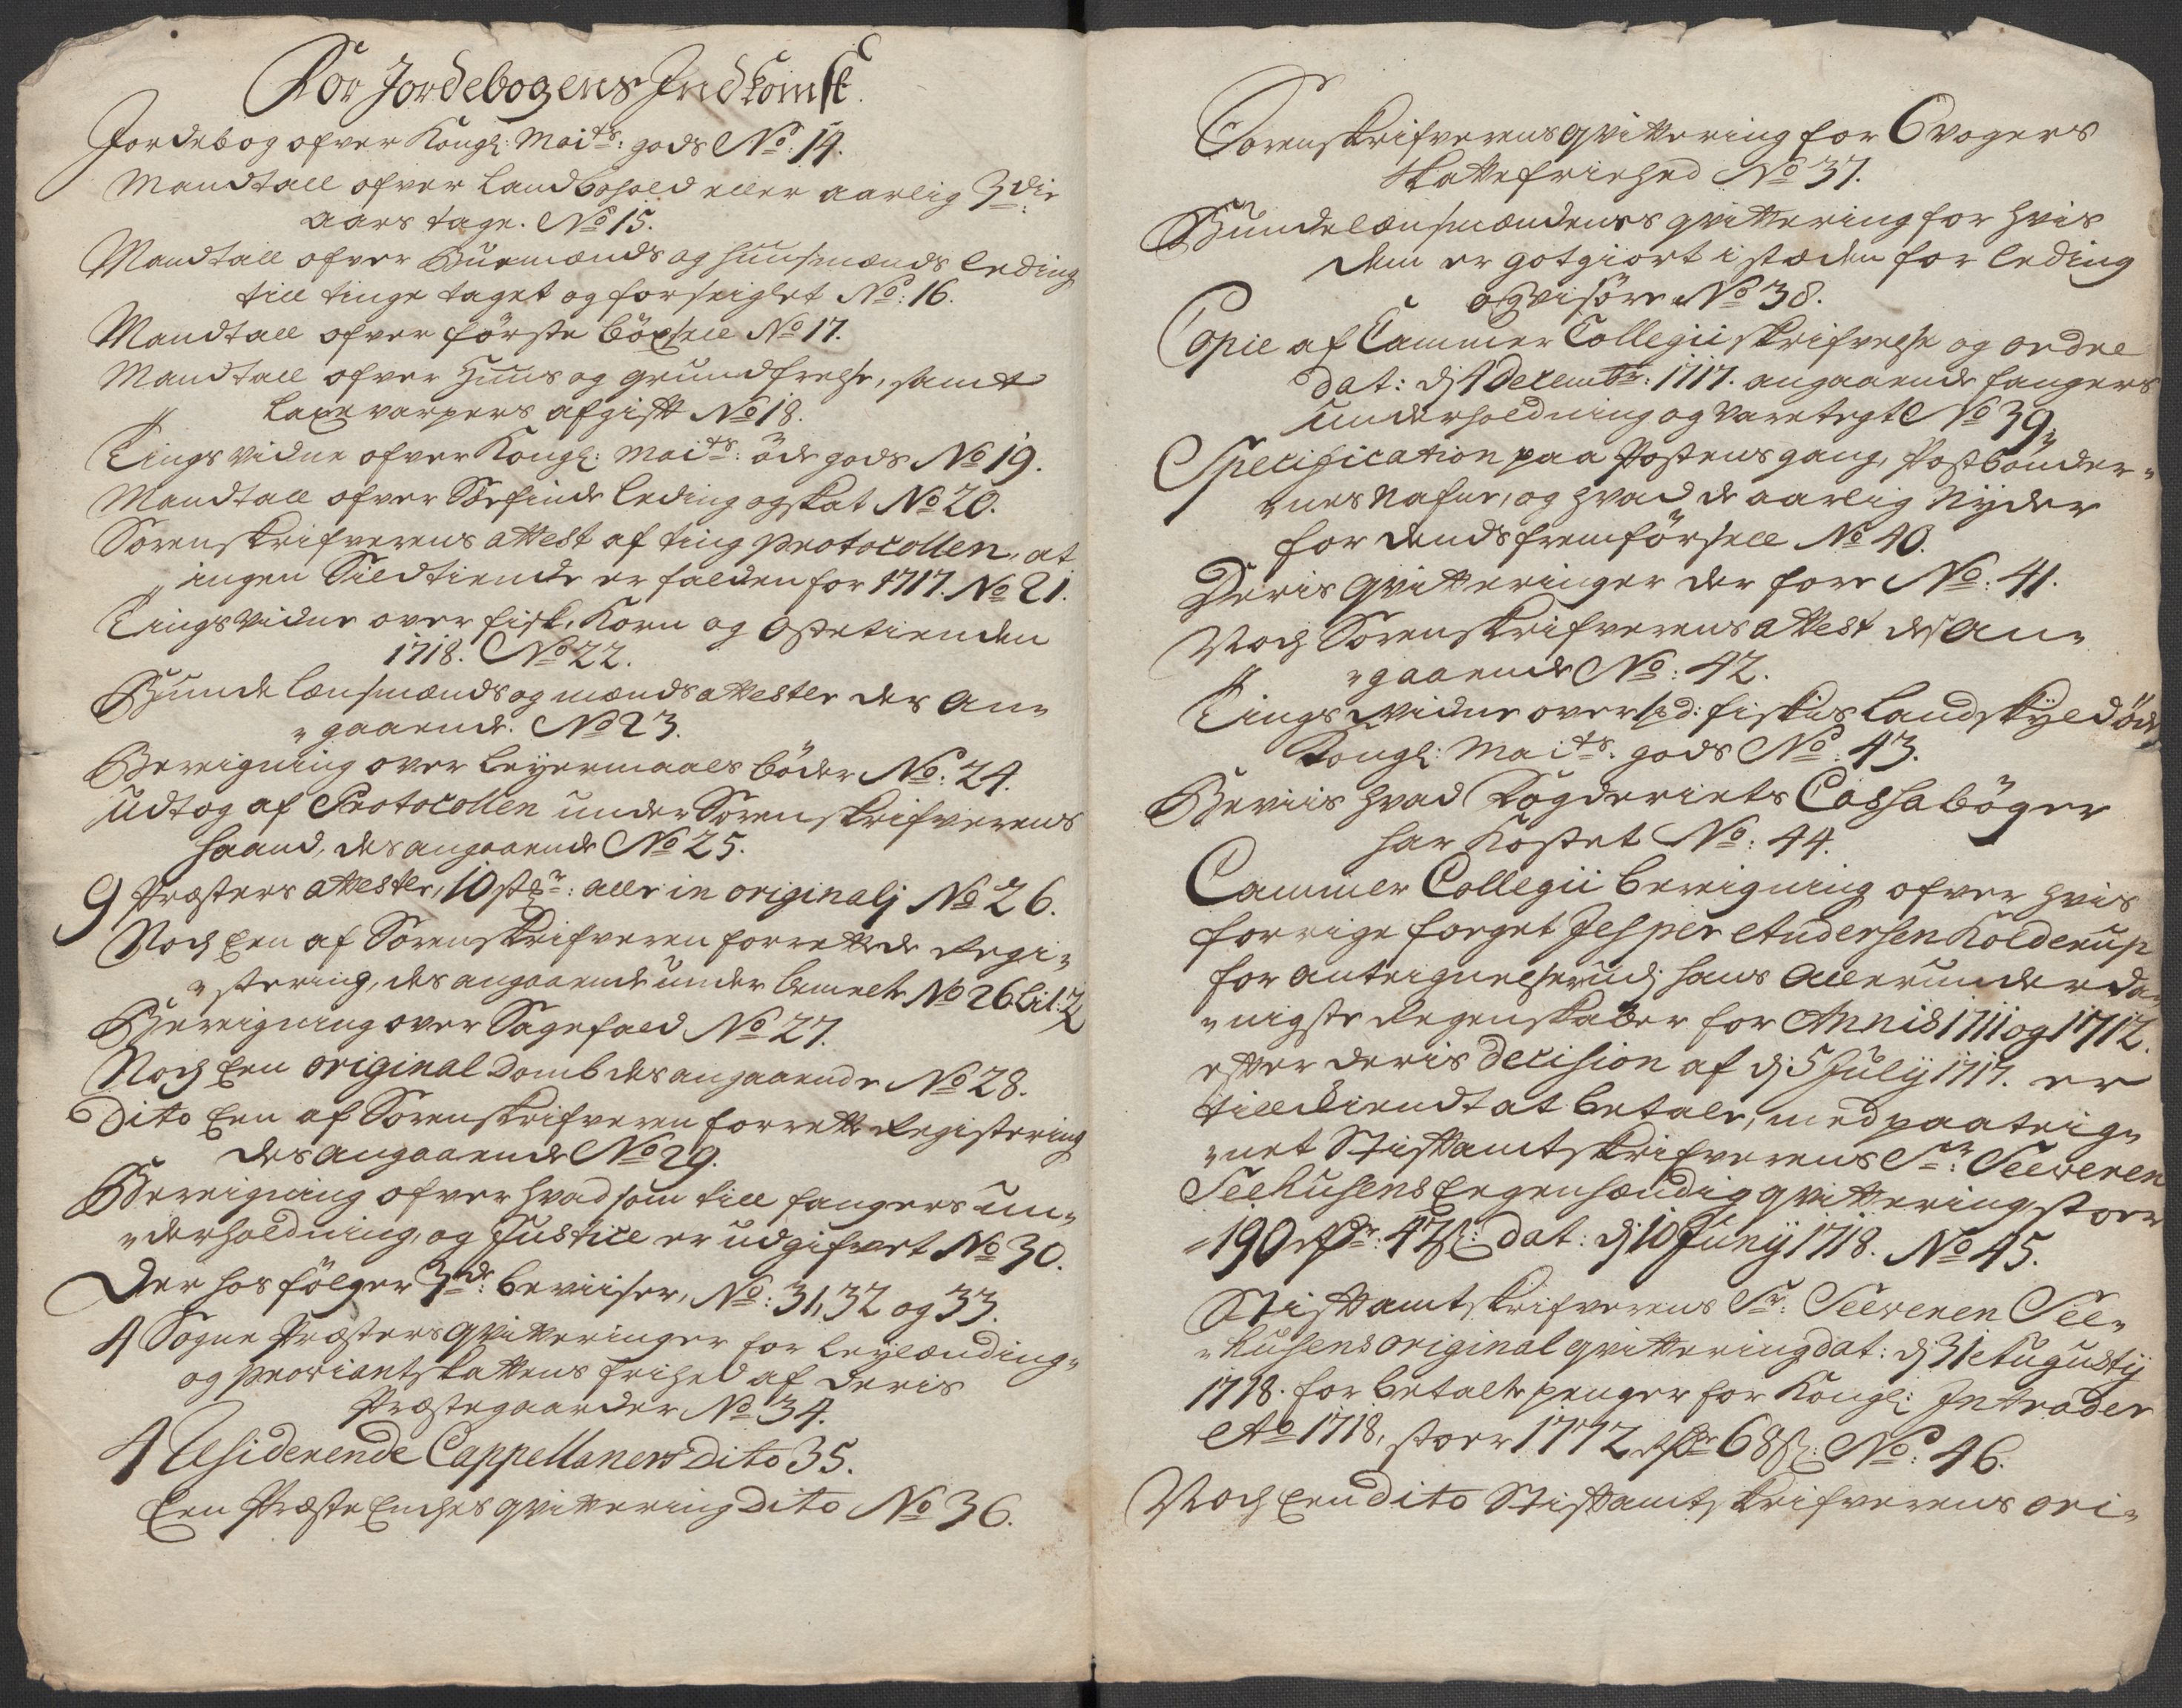 For Jordebogens Indkomst.
Jordebog ofver Kongl: Maits: gods No: 14.
Mandtall ofver Landbohold eller aarlig 3die
aars tage. No 15.
Mandtall ofver Buemænds og huusmænds leding
till tinge taget og forseiglet No: 16.
Mandtall ofver förste böxsell No 17.
Mandtall ofver Huus og grundfrelse, samt
Laxevarpers afgift No 18.
Tings vidne ofver Kongl: Maits: öde gods No 19.
Mandtall ofver Söefinde leding og skat No 20.
Sorenskrifverens attest af ting protocollen, at
ingen Sildtiende er falden for 1717. No 21.
Tingsvidne over fisk, Korn og Ostetienden
1718. No 22.
Bundelænsmænds og mænds attester des an„
„gaaende. No 23.
Bereigning over Leyermaals böder No: 24.
Udtog af Protocollen under Sorenskrifverens
haand, des angaaende No 25.
9 Præsters attester, 10 st: alle in originalj No 26.
Noch Een af Sorenskrifveren forrettede Regi„
„stering, des angaaende under bemelte No 26 Lit: Z
Bereigning over Sagefald No 27.
Noch Een original Domb des angaaende No 28.
Dito Een af Sorenskrifveren forrette Registering
des angaaende No 29.
Bereigning ofver hvad som till fangers un„
„derholdning, og Justice er udgifvet No 30.
Der hos fölger 3de: beviiser, No: 31, 32 og 33.
4 Sogne Præsters qvitteringer for Leylænding„
og proviantskattens frihed af deris
Præstegaarder No 34.
4 Residerende Cappellaners Dito 35.
Een Præste Enches qvittering Dito No 36.
Sorenskrifverens qvittering for 6 vogers
skattefriehed No 37.
Bundelænsmændenes qvittering for hvis
dem er gotgiort i stæden for leding
og visöre No 38.
Copie af Cammer Collegii skrifvelse og ordre
dat: dj 4 Decembr: 1717. angaaende fangers
underholdning og varetegt No 39„
Specification paa Postens gang, Postbönder„
„nes Nafne, og hvad de aarlig Nyder
for dends fremförsell No 40.
Deris qvitteringer der for No: 41.
Noch Sorenskrifverens attest des an„
„gaaende No: 42.
Tings vidne over 1pd: fiskis Landskyld öde
Kongl: Maits: gods No: 43.
Beviis hvad Fogderiets Cassabøger
har Kostet No: 44.
Cammer Collegii bereigning ofver hvis
forrige foeget Jesper Andersen Kolderup
for anteignelser udj hans allerunderda„
„nigste Regenskaber for Annis 1711 og 1712.
efter deris decision af dj 5 Julij 1717. er
tilkiendt at betale, med paateig„
„net Stiftamtskrifverens Sr: Seeveren
Seehusens Eegenhændig qvittering stoer
„190 rdr: 47 s: dat: dj 10 Junij 1718. No 45.
Stiftamtskrifverens Sr: Seeveren See„
„husens original qvittering dat: dj 31 Augustij
1718. for betalte penger for Kongl: Intrader
Ao 1718, stoer 1772 rdr 68 s: No: 46.
Noch Een dito Stiftamtskrifverens ori„